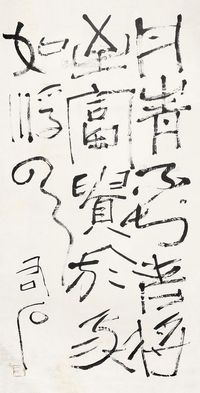 丹青不知老將
至富貴於我
如浮雲